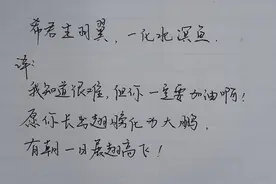 希君生羽翼，一化北溟鱼.
译：
我知道很难，但你一定要加油啊！
愿你长出翅膀化为大鹏，
有朝一日展翅高飞！